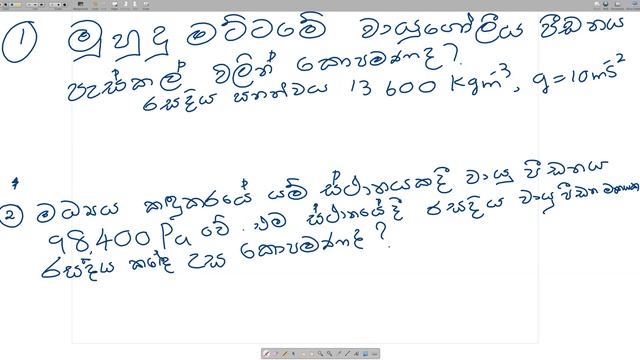 ① මුහුදු මට්ටමේ වායුගෝලීය පීඩනය
පැස්කල් වලින් කොපමණද?
රසදිය ඝනත්වය 13 600 kgm⁻³, g = 10 ms⁻²
② මධ්‍යය කඳුකරයේ යම් ස්ථානයකදී වායු පීඩනය
98,400 Pa වේ. එම ස්ථානයේදී රසදිය වායු පීඩන මානයක
රසදිය කඳේ උස කොපමණද?